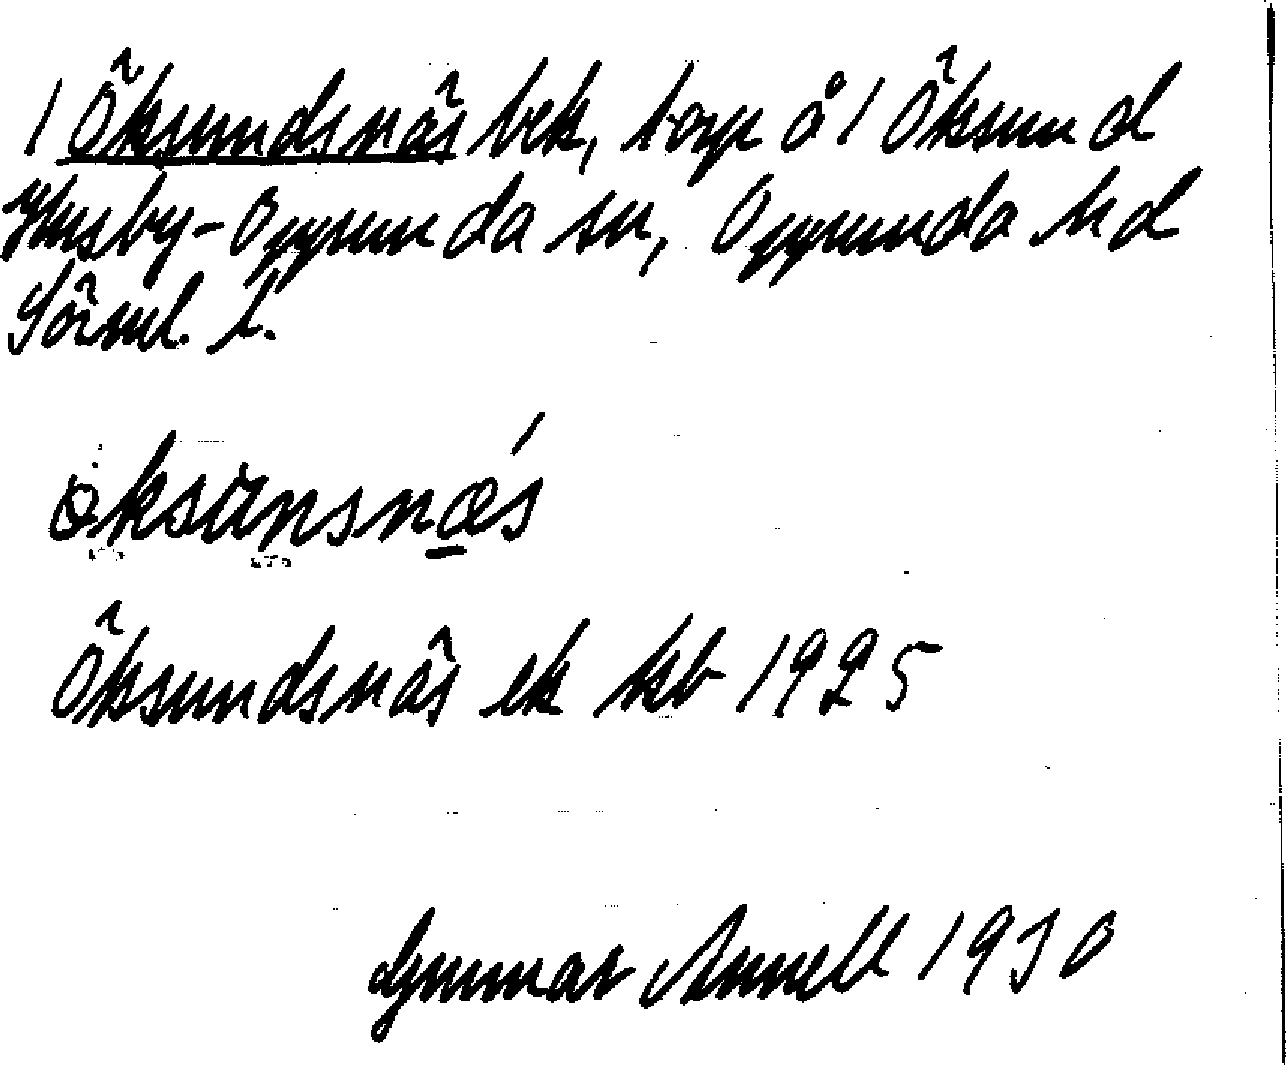 1 Öksundsnäs bek, torp å 1 Öksund
Husby-Oppunda sn, Oppunda hd
Sörml. l.
öksúnsnæ̀s
Öksundsnäs ek kb 1925
Gunnar Annell 1930